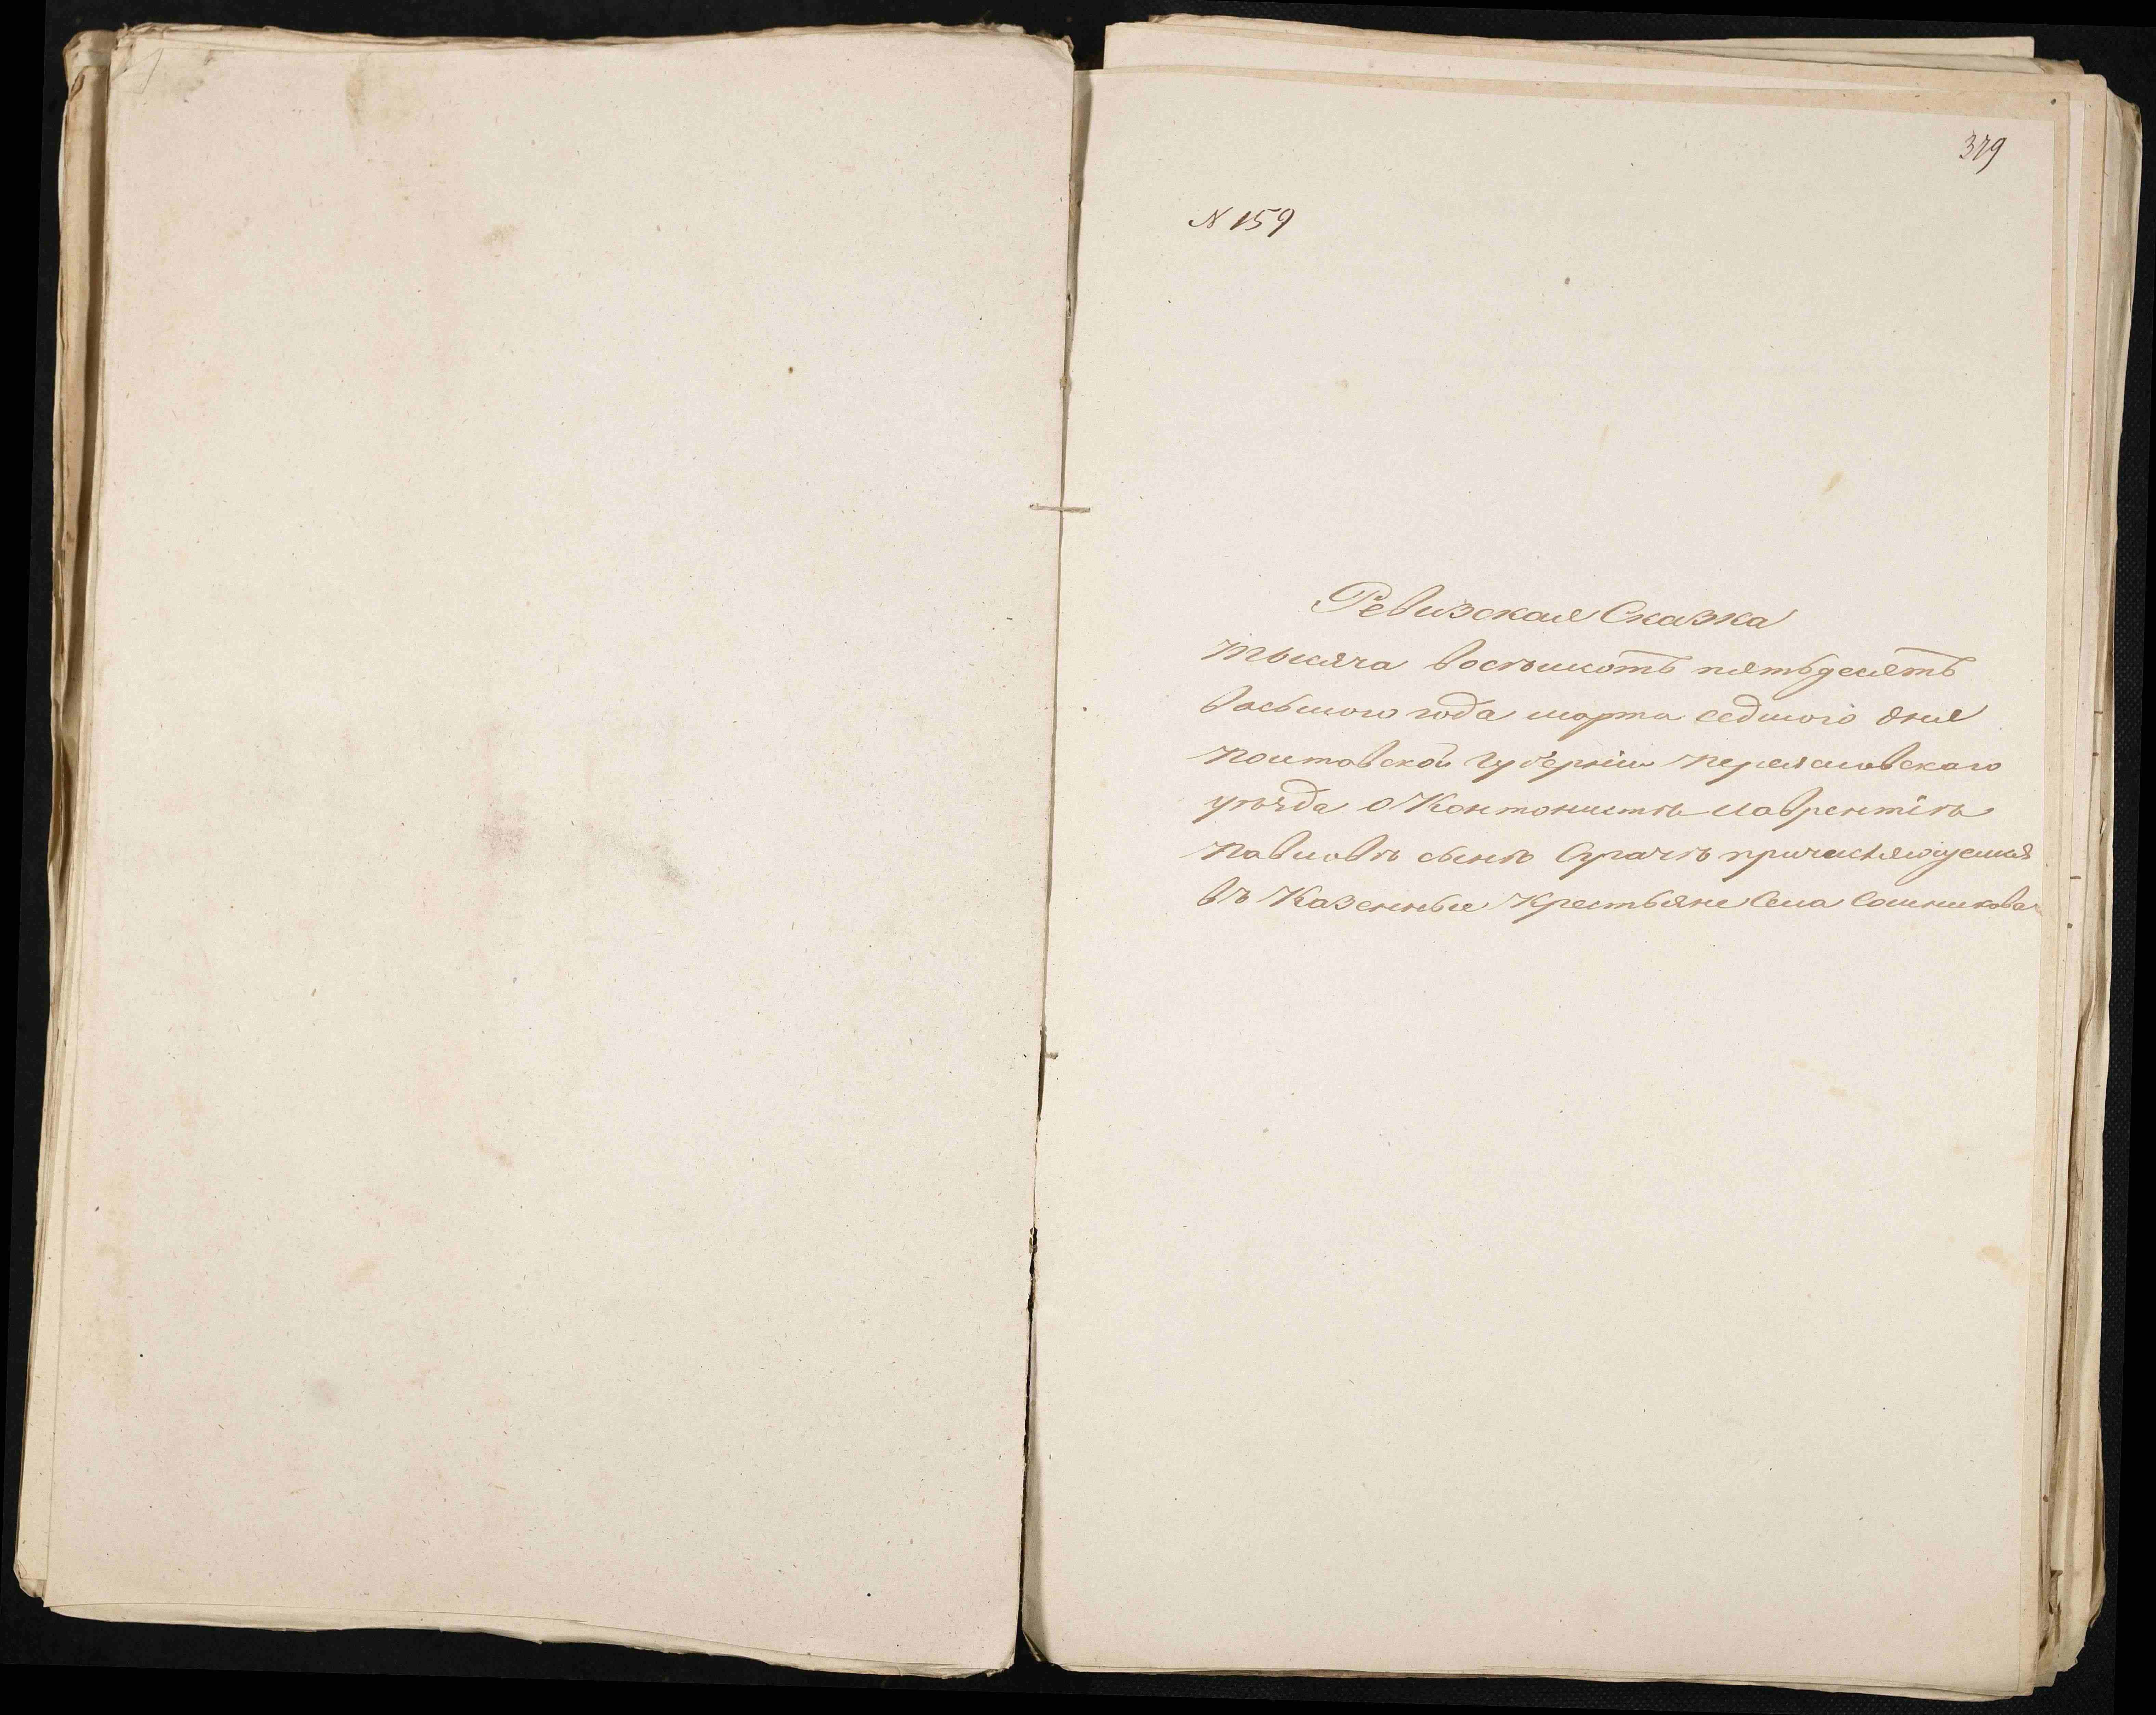 379
N 159
Ревизская Сказка
тысяча восѣмсотъ пятьдесятъ
восьмого года марта седмого дня
Полтавской Губерніи Переяславского
уѣзда о Кантонистѣ Лаврентіѣ
Павловѣ сынѣ причисляющемся
въ Казенные Крестьяне Села Сошникова